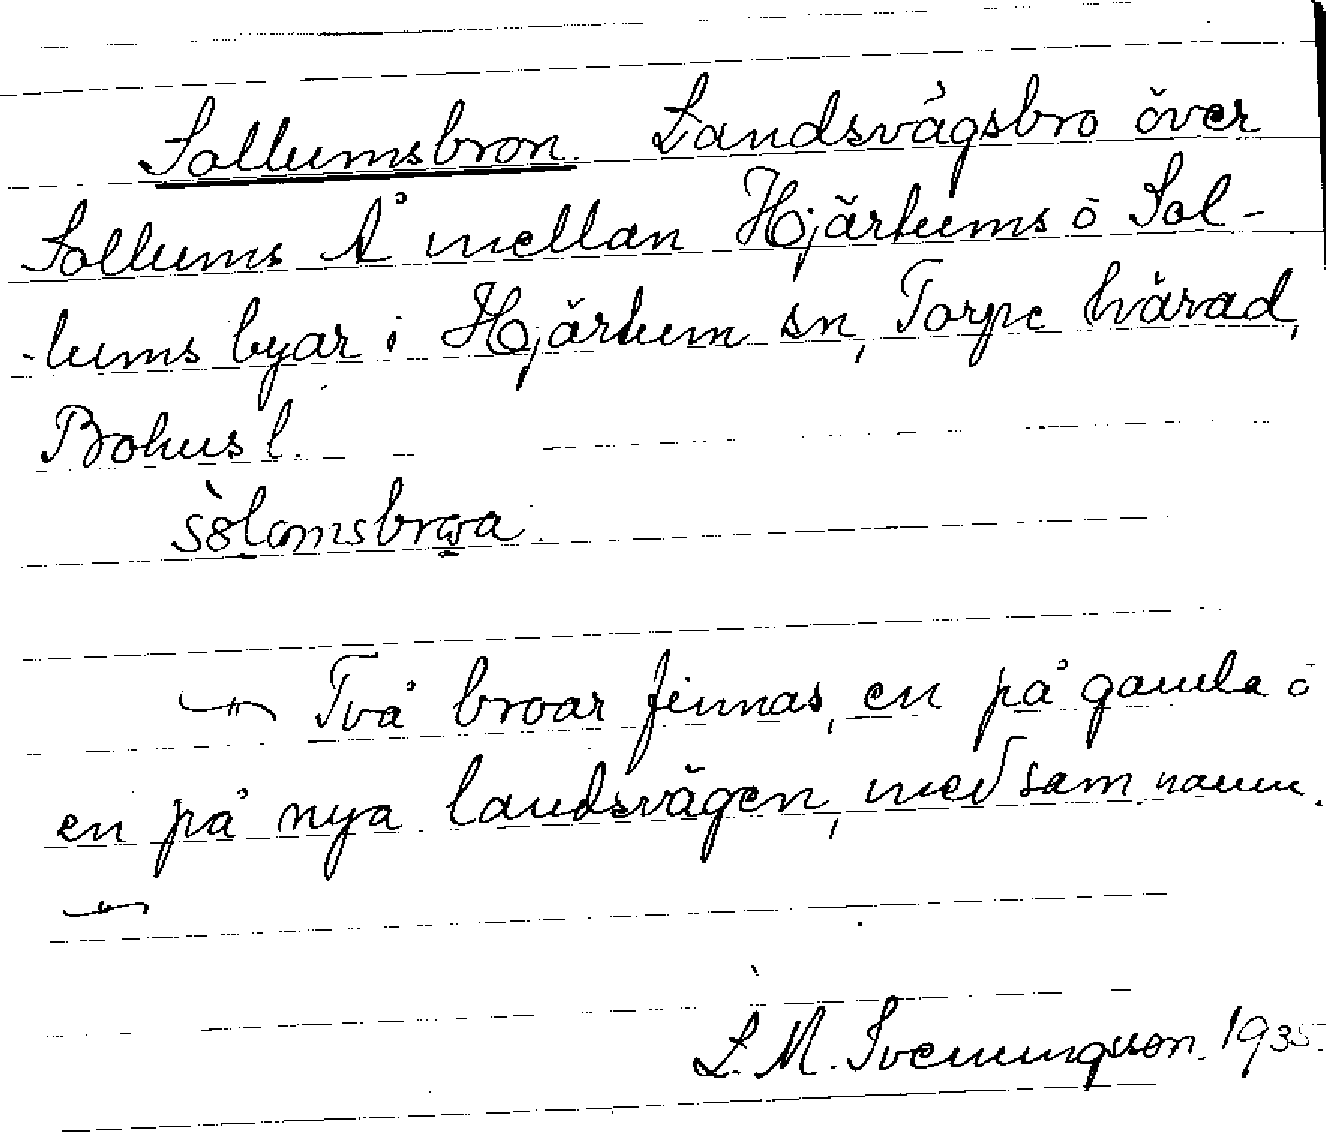 Sollumsbron. Landsvägsbro över
Sollums Å mellan Hjärtums o Sol-
-lums byar i Hjärtum sn, Torpe härad,
Bohusl.
Två broar finnas, en på gamla o
en på nya landsvägen, med sam. namn.
L. M. Svenungsson. 1935.